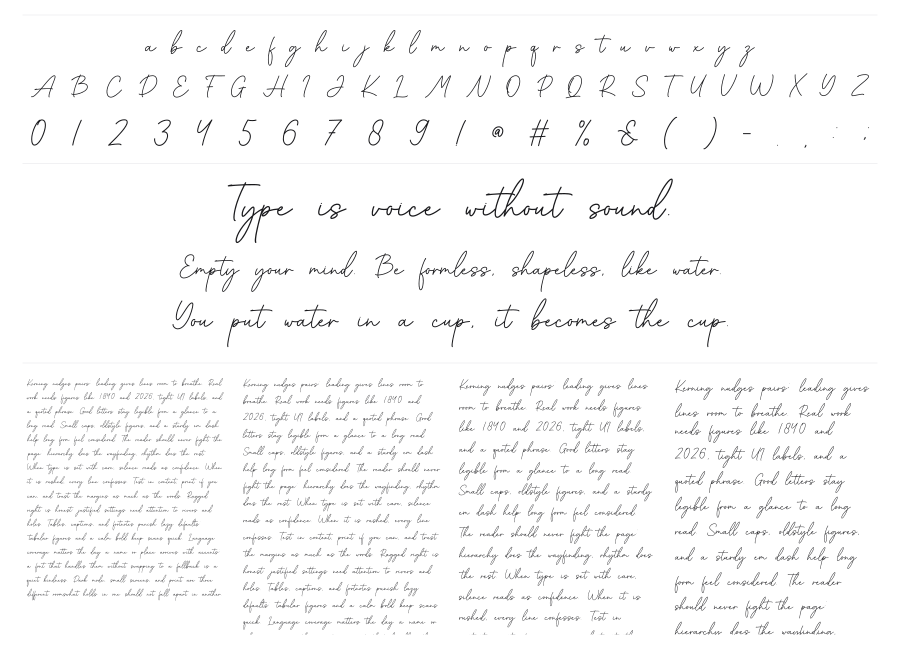 a b c d e f g h i j k l m n o p q r s t u v w x y z
A B C D E F G H I J K L M N O P Q R S T U V W X Y Z
0 1 2 3 4 5 6 7 8 9 ! @ # % & ( ) - . , : ;
Type is voice without sound.
Empty your mind. Be formless, shapeless, like water.
You put water in a cup, it becomes the cup.
Kerning nudges pairs; leading gives lines room to breathe. Real
work needs figures like 1840 and 2026, tight UI labels, and
a quoted phrase. Good letters stay legible from a glance to a
long read. Small caps, oldstyle figures, and a sturdy em dash
help long form feel considered. The reader should never fight the
page; hierarchy does the wayfinding, rhythm does the rest.
When type is set with care, silence reads as confidence. When
it is rushed, every line confesses. Test in context, print if you
can, and trust the margins as much as the words. Ragged
right is honest; justified settings need attention to rivers and
holes. Tables, captions, and footnotes punish lazy defaults;
tabular figures and a calm bold keep scans quick. Language
coverage matters the day a name or place arrives with accents;
a font that handles them without swapping to a fallback is a
quiet kindness. Dark mode, small screens, and print are three
different rooms
Kerning nudges pairs; leading gives lines room to
breathe. Real work needs figures like 1840 and
2026, tight UI labels, and a quoted phrase. Good
letters stay legible from a glance to a long read.
Small caps, oldstyle figures, and a sturdy em dash
help long form feel considered. The reader should never
fight the page; hierarchy does the wayfinding, rhythm
does the rest. When type is set with care, silence
reads as confidence. When it is rushed, every line
confesses. Test in context, print if you can, and trust
the margins as much as the words. Ragged right is
honest; justified settings need attention to rivers and
holes. Tables, captions, and footnotes punish lazy
defaults; tabular figures and a calm bold keep scans
quick. Language coverage matters the day a name or
Kerning nudges pairs; leading gives lines
room to breathe. Real work needs figures
like 1840 and 2026, tight UI labels,
and a quoted phrase. Good letters stay
legible from a glance to a long read.
Small caps, oldstyle figures, and a sturdy
em dash help long form feel considered.
The reader should never fight the page;
hierarchy does the wayfinding, rhythm does
the rest. When type is set with care,
silence reads as confidence. When it is
rushed, every line confesses. Test in
Kerning nudges pairs; leading gives
lines room to breathe. Real work
needs figures like 1840 and
2026, tight UI labels, and a
quoted phrase. Good letters stay
legible from a glance to a long
read. Small caps, oldstyle figures,
and a sturdy em dash help long
form feel considered. The reader
should never fight the page;
hierarchy does the wayfinding,